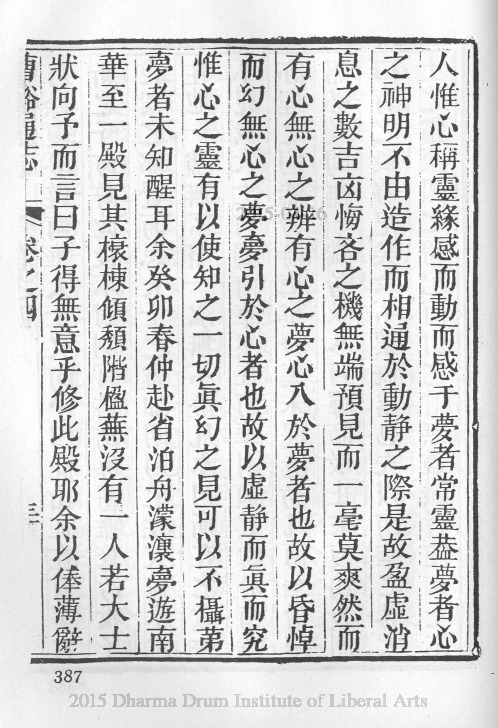 人惟心稱靈緣感而動而感于夢者常靈葢夢者心
之神明不由造作而相通於動静之際是故盈虛消
息之數吉㐫悔吝之機無端預見而一毫莫爽然而
有心無心之辨有心之夢心入於夢者也故以昏悼
而幻無心之夢夢引於心者也故以虛静而眞而究
惟心之靈有以使知之一切眞幻之見可以不攝第
夢者未知醒耳余癸卯春仲赴省泊舟濛瀼夢遊南
華至一殿見其榱棟傾頹階楹蕪沒有一人若大士
狀向予而言曰子得無意乎修此殿耶余以俸薄辭
曹谿通志 卷之四 三
387
2015 Dharma Drum Institute of Liberal Arts